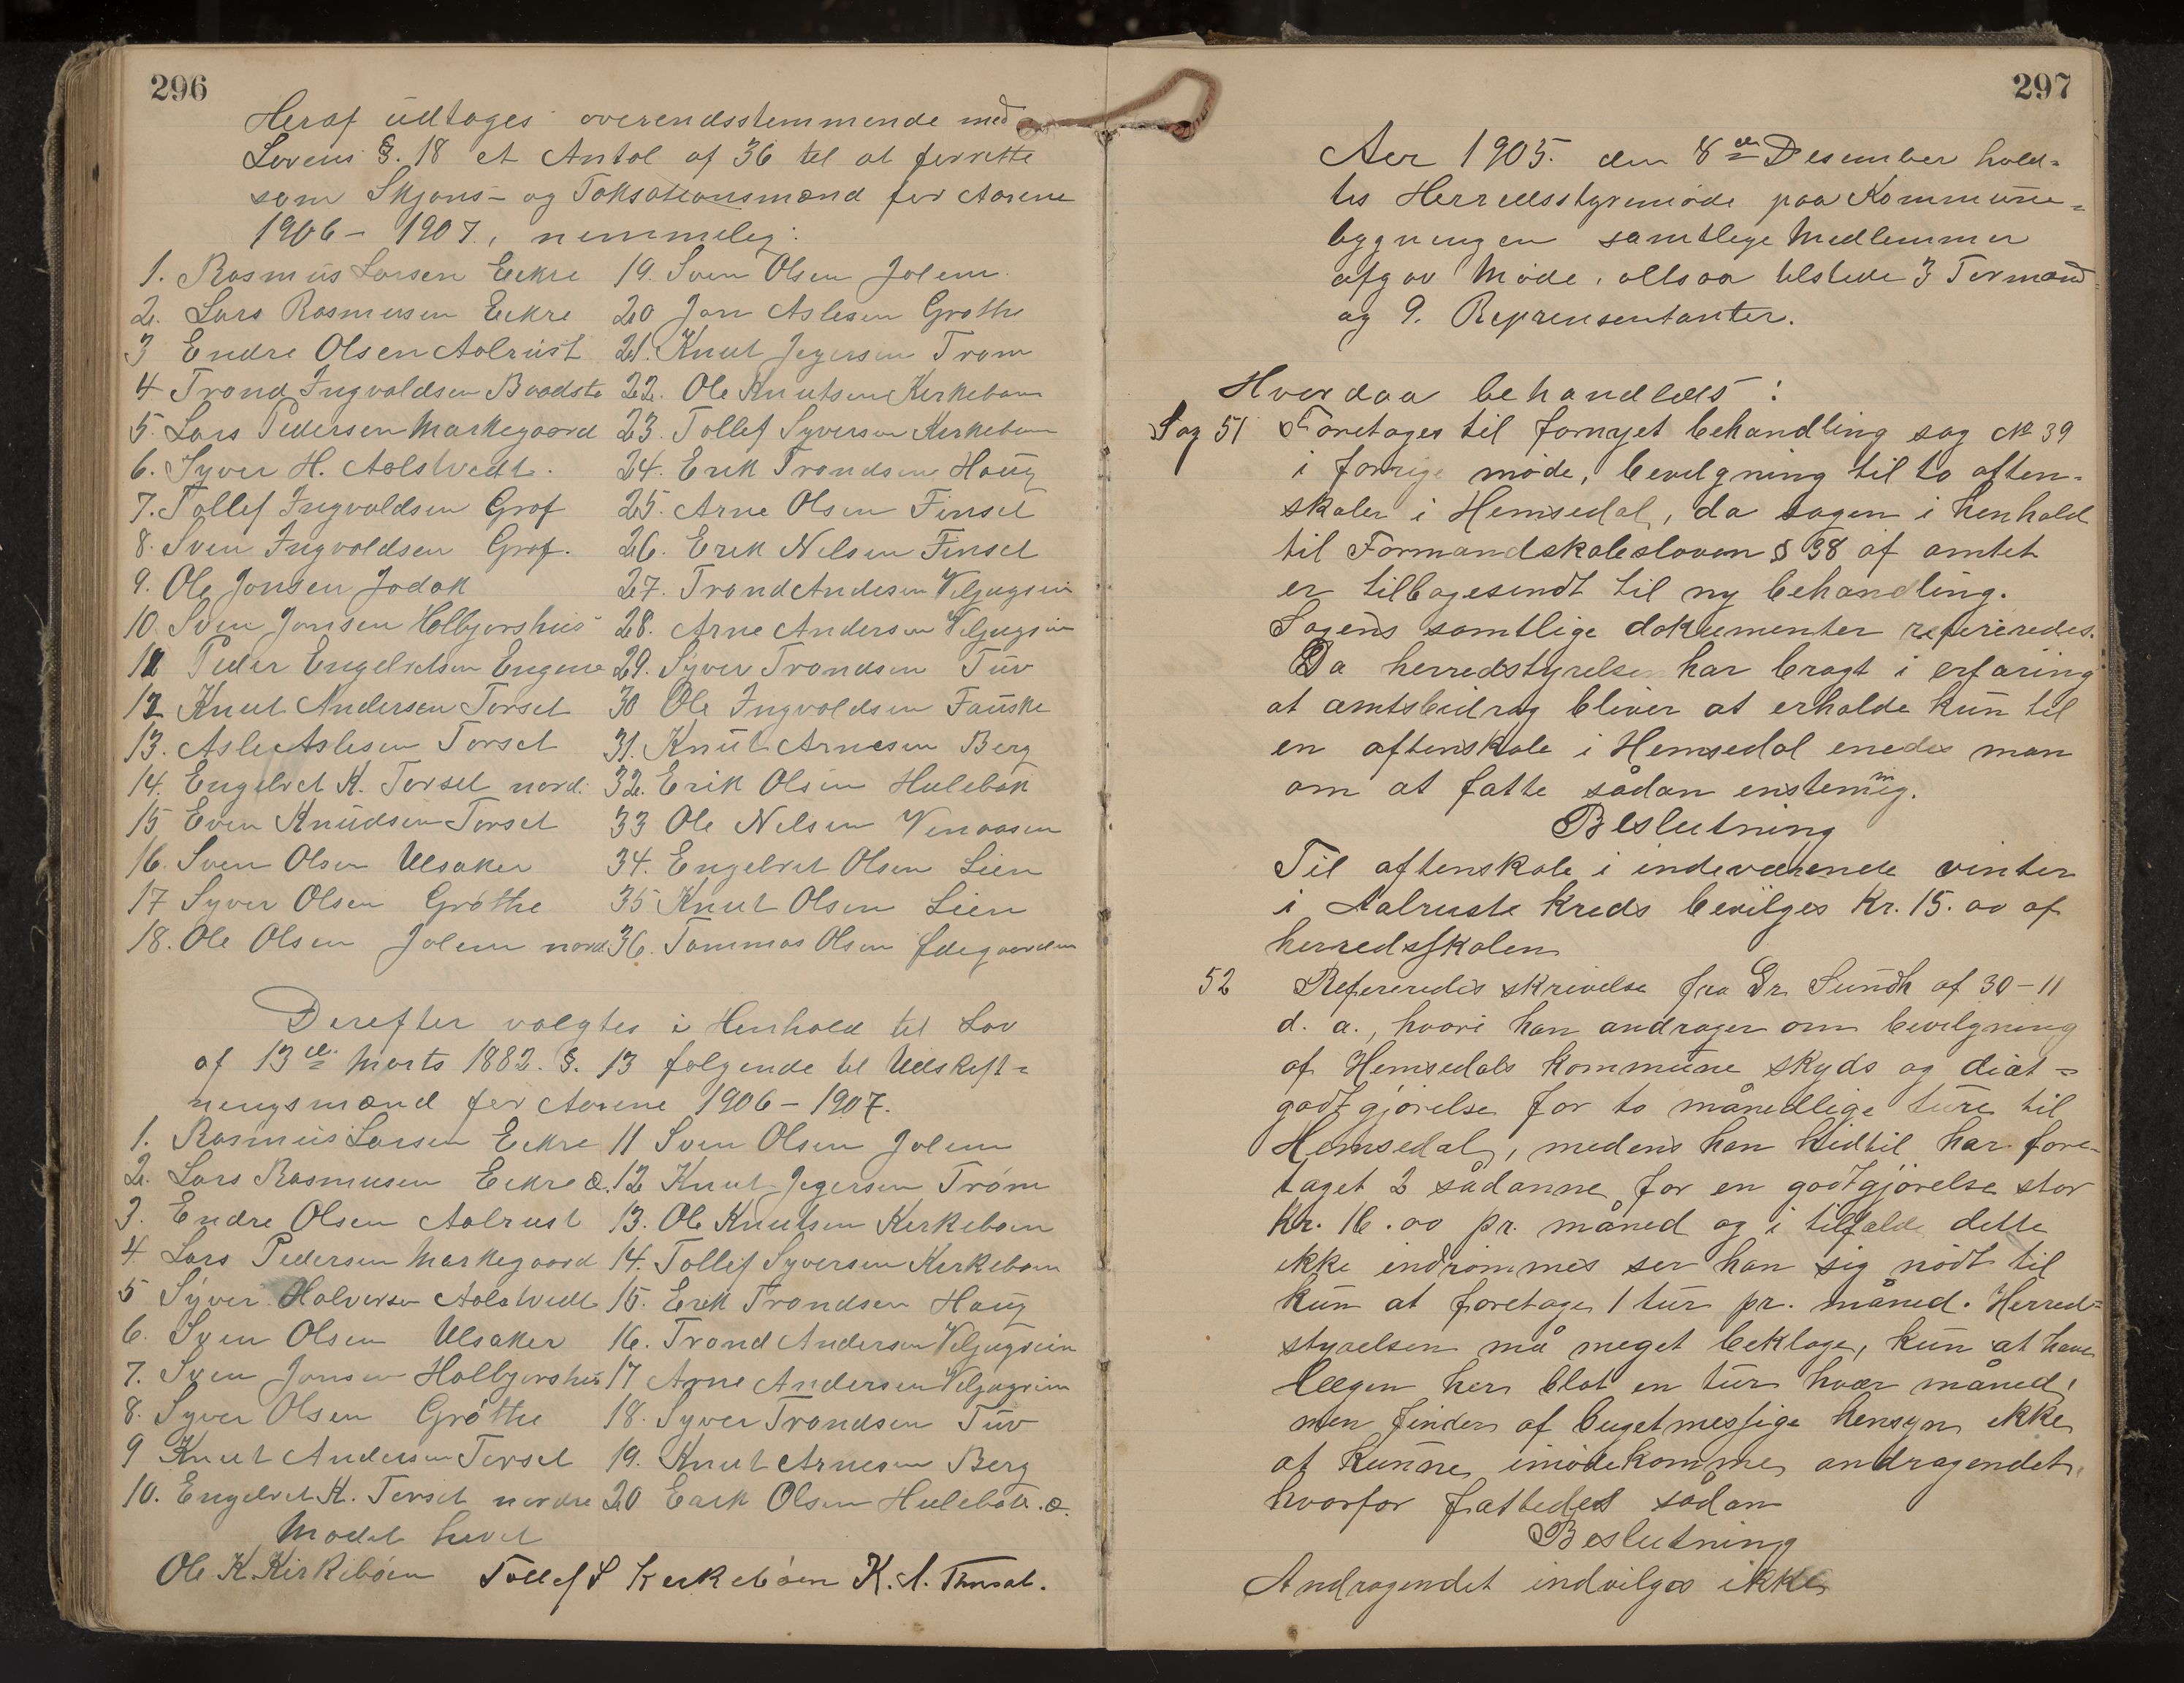 296
Heraf udtages overendsstemmende med
Lovens §. 18 et Antal af 36 til at forrette
som Skjøns- og Taksationsmænd for Aarene
1906 - 1907, nemmelig:
1. Rasmus Larsen Eekre
2. Lars Rasmusen Eekre
3 Endre Olsen Aalrust
4 Trond Ingvaldsen Baadste
5. Lars Pedersen Markegaard
6. Syver H. Aalstvedt.
7. Tollef Ingvaldsen Grøf
8. Sven Ingvaldsen Grøf.
9. Ole Jonsen Jodøk
10. Sven Jonsen Holbjørshus
11 Peder Engebretsen Engene
12 Knut Andersen Torset
13. Asle Aslesen Torset
14. Engebret K. Torset nord:
15 Even Knudsen Torset
16. Sven Olsen Ulsaker
17 Syver Olsen Grøthe
18. Ole Olsen Jølem nord
19. Sven Olsen Jølem
20 Jon Aslesen Grøthe
21. Knut Jegersen Trøm
22. Ole Knutsen Kerkebøen
23. Tollef Syversen Kerkebøen
24. Erik Trondsen Haug
25. Arne Olsen Finset
26. Erik Nilsen Finset
27. Trond Andersen Veljugrein
28. Arne Andersen Veljugrein
29. Syver Trondsen Tuv
30 Ole Ingvaldsen Fauske
31. Knut Arnesen Berg
32. Erik Olsen Hulebak
33 Ole Nilsen Venaasen
34. Engebret Olsen Lien
35 Knut Olsen Lien
36. Tommas Olsen Ødegaarden
Derefter valgtes i Henhold til Lov
af 13de Marts 1882. §. 13 følgende til Udskift-
ningsmænd for Aarene 1906 - 1907.
1. Rasmus Larsen Eekre
2. Lars Rasmusen Eekre Ø.
3. Endre Olsen Aalrust
4 Lars Pedersen Markegaard
5 Syver Halversen Aalstvedt
6. Sven Olsen Ulsaker
7. Sven Jonsen Holbjørshus
8. Syver Olsen Grøthe
9 Knut Andersen Torset
10. Engebret K. Torset nordre
11 Sven Olsen Jølem
12 Knut Jegersen Trøm
13. Ole Knutsen Kerkebøen
14. Tollef Syversen Kerkebøen
15. Erik Trondsen Haug
16. Trond Andersen Veljugrein
17 Arne Andersen Veljugrein
18. Syver Trondsen Tuv
19. Knut Arnesen Berg
20 Erik Olsen Hulebak. Ø.
Mødet hævet
Ole K. Kirkebøen Tollef S Kerkebøen K. A. Thorset.
297
Aar 1905. den 8de Desember hold-
tes Herredsstyremøde paa Kommune-
bygningen samtlege Medlemmer
afgav Møde, altsaa tilstede 3 Formænd
og 9. Reprensentanter.
Hvor daa behandledes:
Sag 51 Foretoges til fornyet behandling sag № 39
i forrige møde, bevilgning til to aften-
skoler i Hemsedal, da sagen i henhold
til Formandskabsloven § 38 af amtet
er tilbagesendt til ny behandling.
Sagens samtlige dokumenter refereredes.
Da herredstyrelsen har bragt i erfaring
at amtsbidrag bliver at erholde kun til
en aftenskole i Hemsedal enedes man
om at fatte sådan enstemmig.
Beslutning
Til aftenskole i indeværende vinter
i Aalruste kreds bevilges Kr. 15.00 af
herredsskolen
52 Refereredes skrivelse fra Dr. Sundh af 30-11
d. a., hvori han andrager om bevilgning
af Hemsedals kommune skyds og diæt-
godtgjørelse for to månedlige ture til
Hemsedal, medens han hidtil har fore-
taget 2 sådanne for en godtgjørelse stor
Kr. 16.00 pr. måned og i tilfælde dette
ikke indrømmes ser han sig nødt til
kun at foretage 1 tur pr. måned. Herred-
styrelsen må meget beklage, kun at have
lægen her blot en tur hvær måned,
men finder af bugetmessige hensyn ikke
at kunne imødekomme andragendet,
hvorfor fattedes sådan
Beslutning
Andragendet indvilges ikke